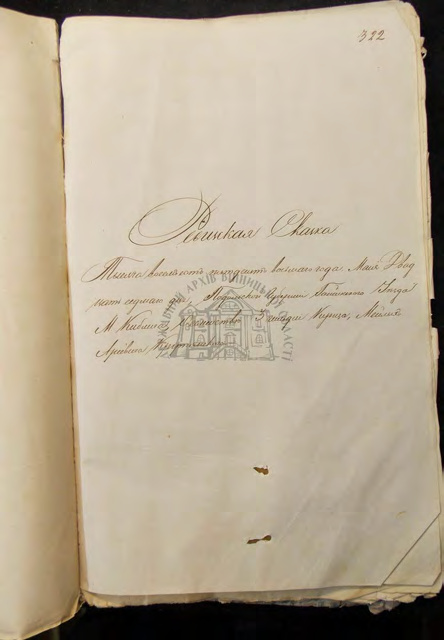 322
Ревизская Сказка
Тысяча восемьсот пятьдесят восьмаго года Мая Двад
цать седмаго дня, Подольской Губернии Гайсинского Уезда
М. Кублича, 3 гильдии Купца,
ДЕРЖАВНИЙ АРХІВ ВІННИЦЬКОЇ ОБЛАСТІ